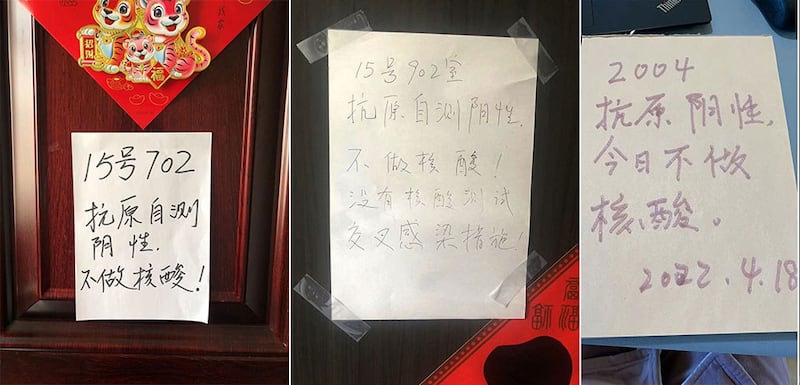 招财
福
15号702
抗原自测
阴性.
不做核酸!
15号902室
抗原自测阴性.
不做核酸!
没有核酸测试
交叉感染措施!
福
福
2004
抗原阴性,
今日不做
核酸。
2022.4.18
Think